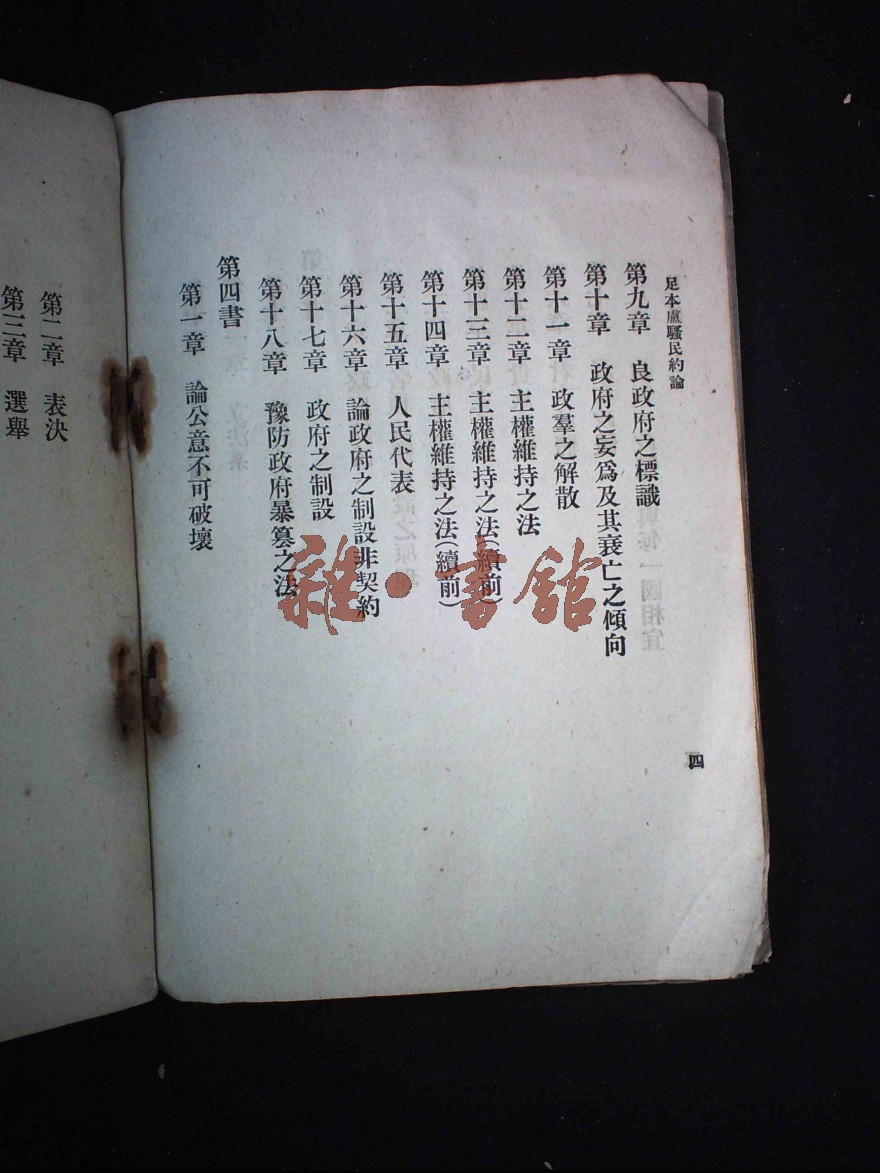 足本盧騷民約論
第九章　良政府之標識
第十章　政府之妄爲及其衰亡之傾向
第十一章　政羣之解散
第十二章　主權維持之法
第十三章　主權維持之法(續前)
第十四章　主權維持之法(續前)
第十五章　人民代表
第十六章　論政府之制設非契約
第十七章　政府之制設
第十八章　豫防政府暴篡之法
第四書
第一章　論公意不可破壞
四
第二章　表決
第三章　選舉
雜·書館